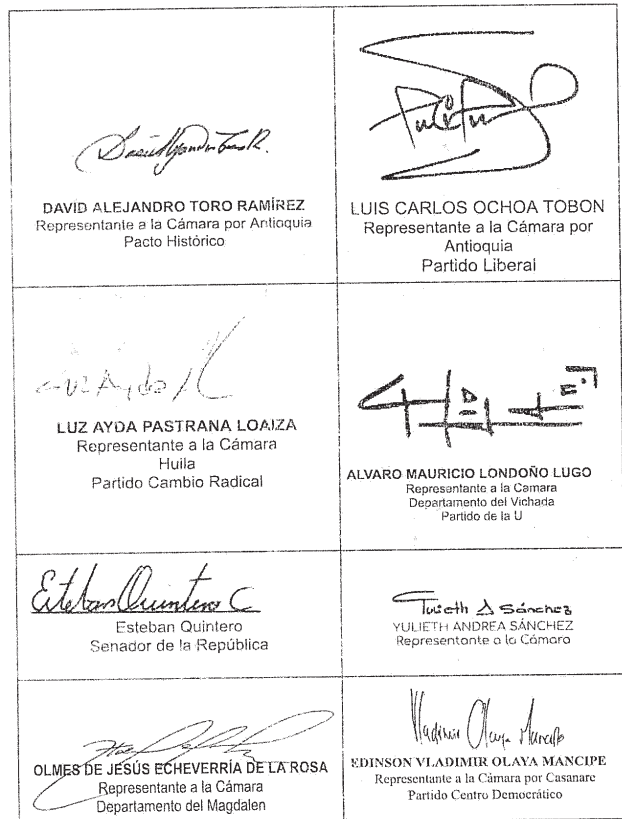 DAVID ALEJANDRO TORO RAMÍREZ
Representante a la Cámara por Antioquia
Pacto Histórico
LUIS CARLOS OCHOA TOBON
Representante a la Cámara por
Antioquia
Partido Liberal
Luz Ayda
LUZ AYDA PASTRANA LOAIZA
Representante a la Cámara
Huila
Partido Cambio Radical
ALVARO MAURICIO LONDOÑO LUGO
Representante a la Camara
Departamento del Vichada
Partido de la U
Esteban Quintero C
Esteban Quintero
Senador de la República
Yulieth A Sánchez
YULIETH ANDREA SÁNCHEZ
Representante a la Cámara
OLMES DE JESÚS ECHEVERRÍA DE LA ROSA
Representante a la Cámara
Departamento del Magdalen
Vladimir Olaya Mancipe
EDINSON VLADIMIR OLAYA MANCIPE
Representante a la Cámara por Casanare
Partido Centro Democrático